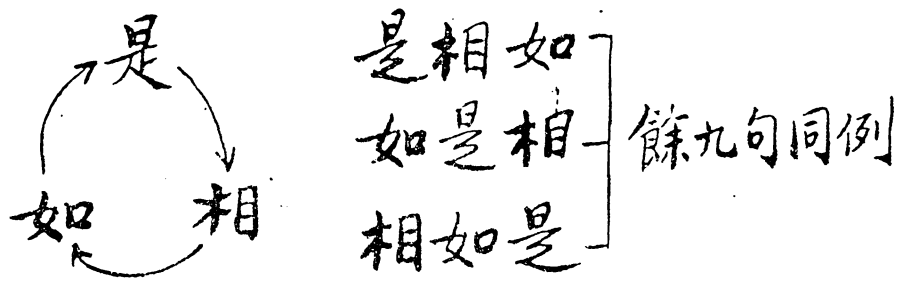 是
如 相
是相如
如是相
相如是
餘九句同例